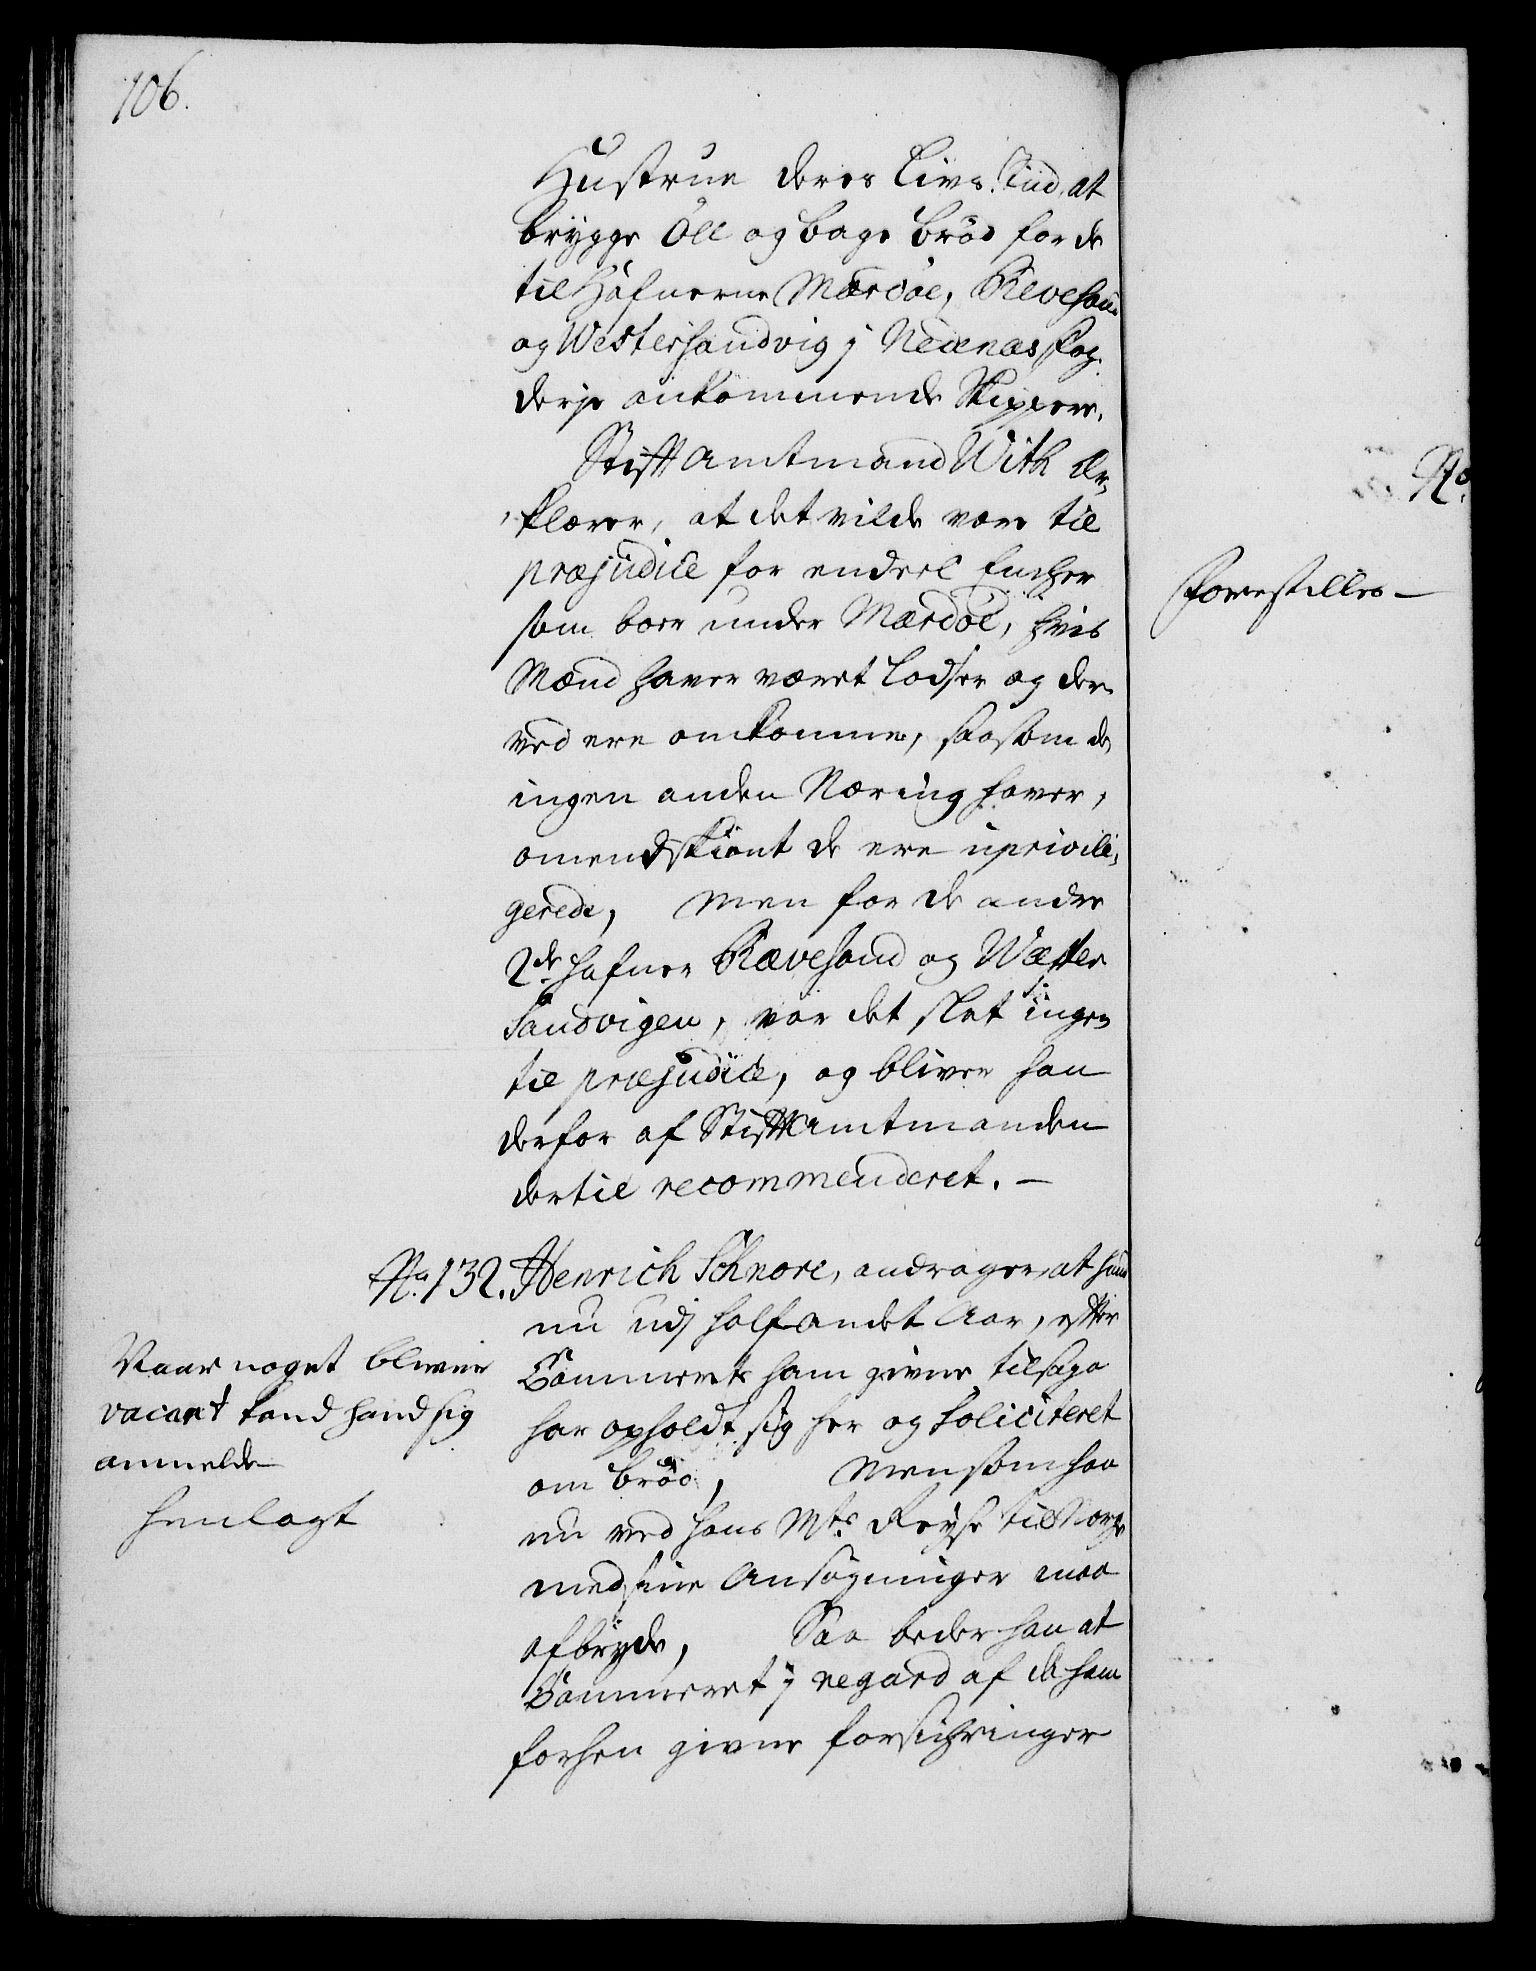 106.
Hustrue deres Livs Tiid, at
brygge Öll og bage Bröd for de
til Hafnerne Mærdöe, Revesand
og Westersandvig j Nedenæs Fog-
derje ankommende Skippere.
Stiftamtmand With Er-
klærer, at det vilde være til
præjudice for endeel Encher
som boer under Mærdöe, hvis
Mænd haver været Lodser og der-
ved ere omkomne, saasom de
ingen anden Næring haver,
omendskiönt de ere uprivili-
gerede, Men for de andre
2de hafner Rævesand og Wæster
Sandvigen, var det slet ingen
til præjudice, og bliver han
derfor af Stiftamtmanden
dertil recommenderet. —
No. 132. Henrich Schnore, andrager, at hand
nu udj halfandet Aar, efter
Cammerets ham givne tilsagn
har opholdt sig her og soliciteret
om bröd, Men som han
nu ved hans Mts Reyse til Norge
med sine Ansögninger maa
afbryde, Saa beder han at
Cammeret j regard af de ham
forhen givne forsichringer
Naar noget bliver
vacant kand hand sig
anmelde
henlagt
No.
Forestilles —